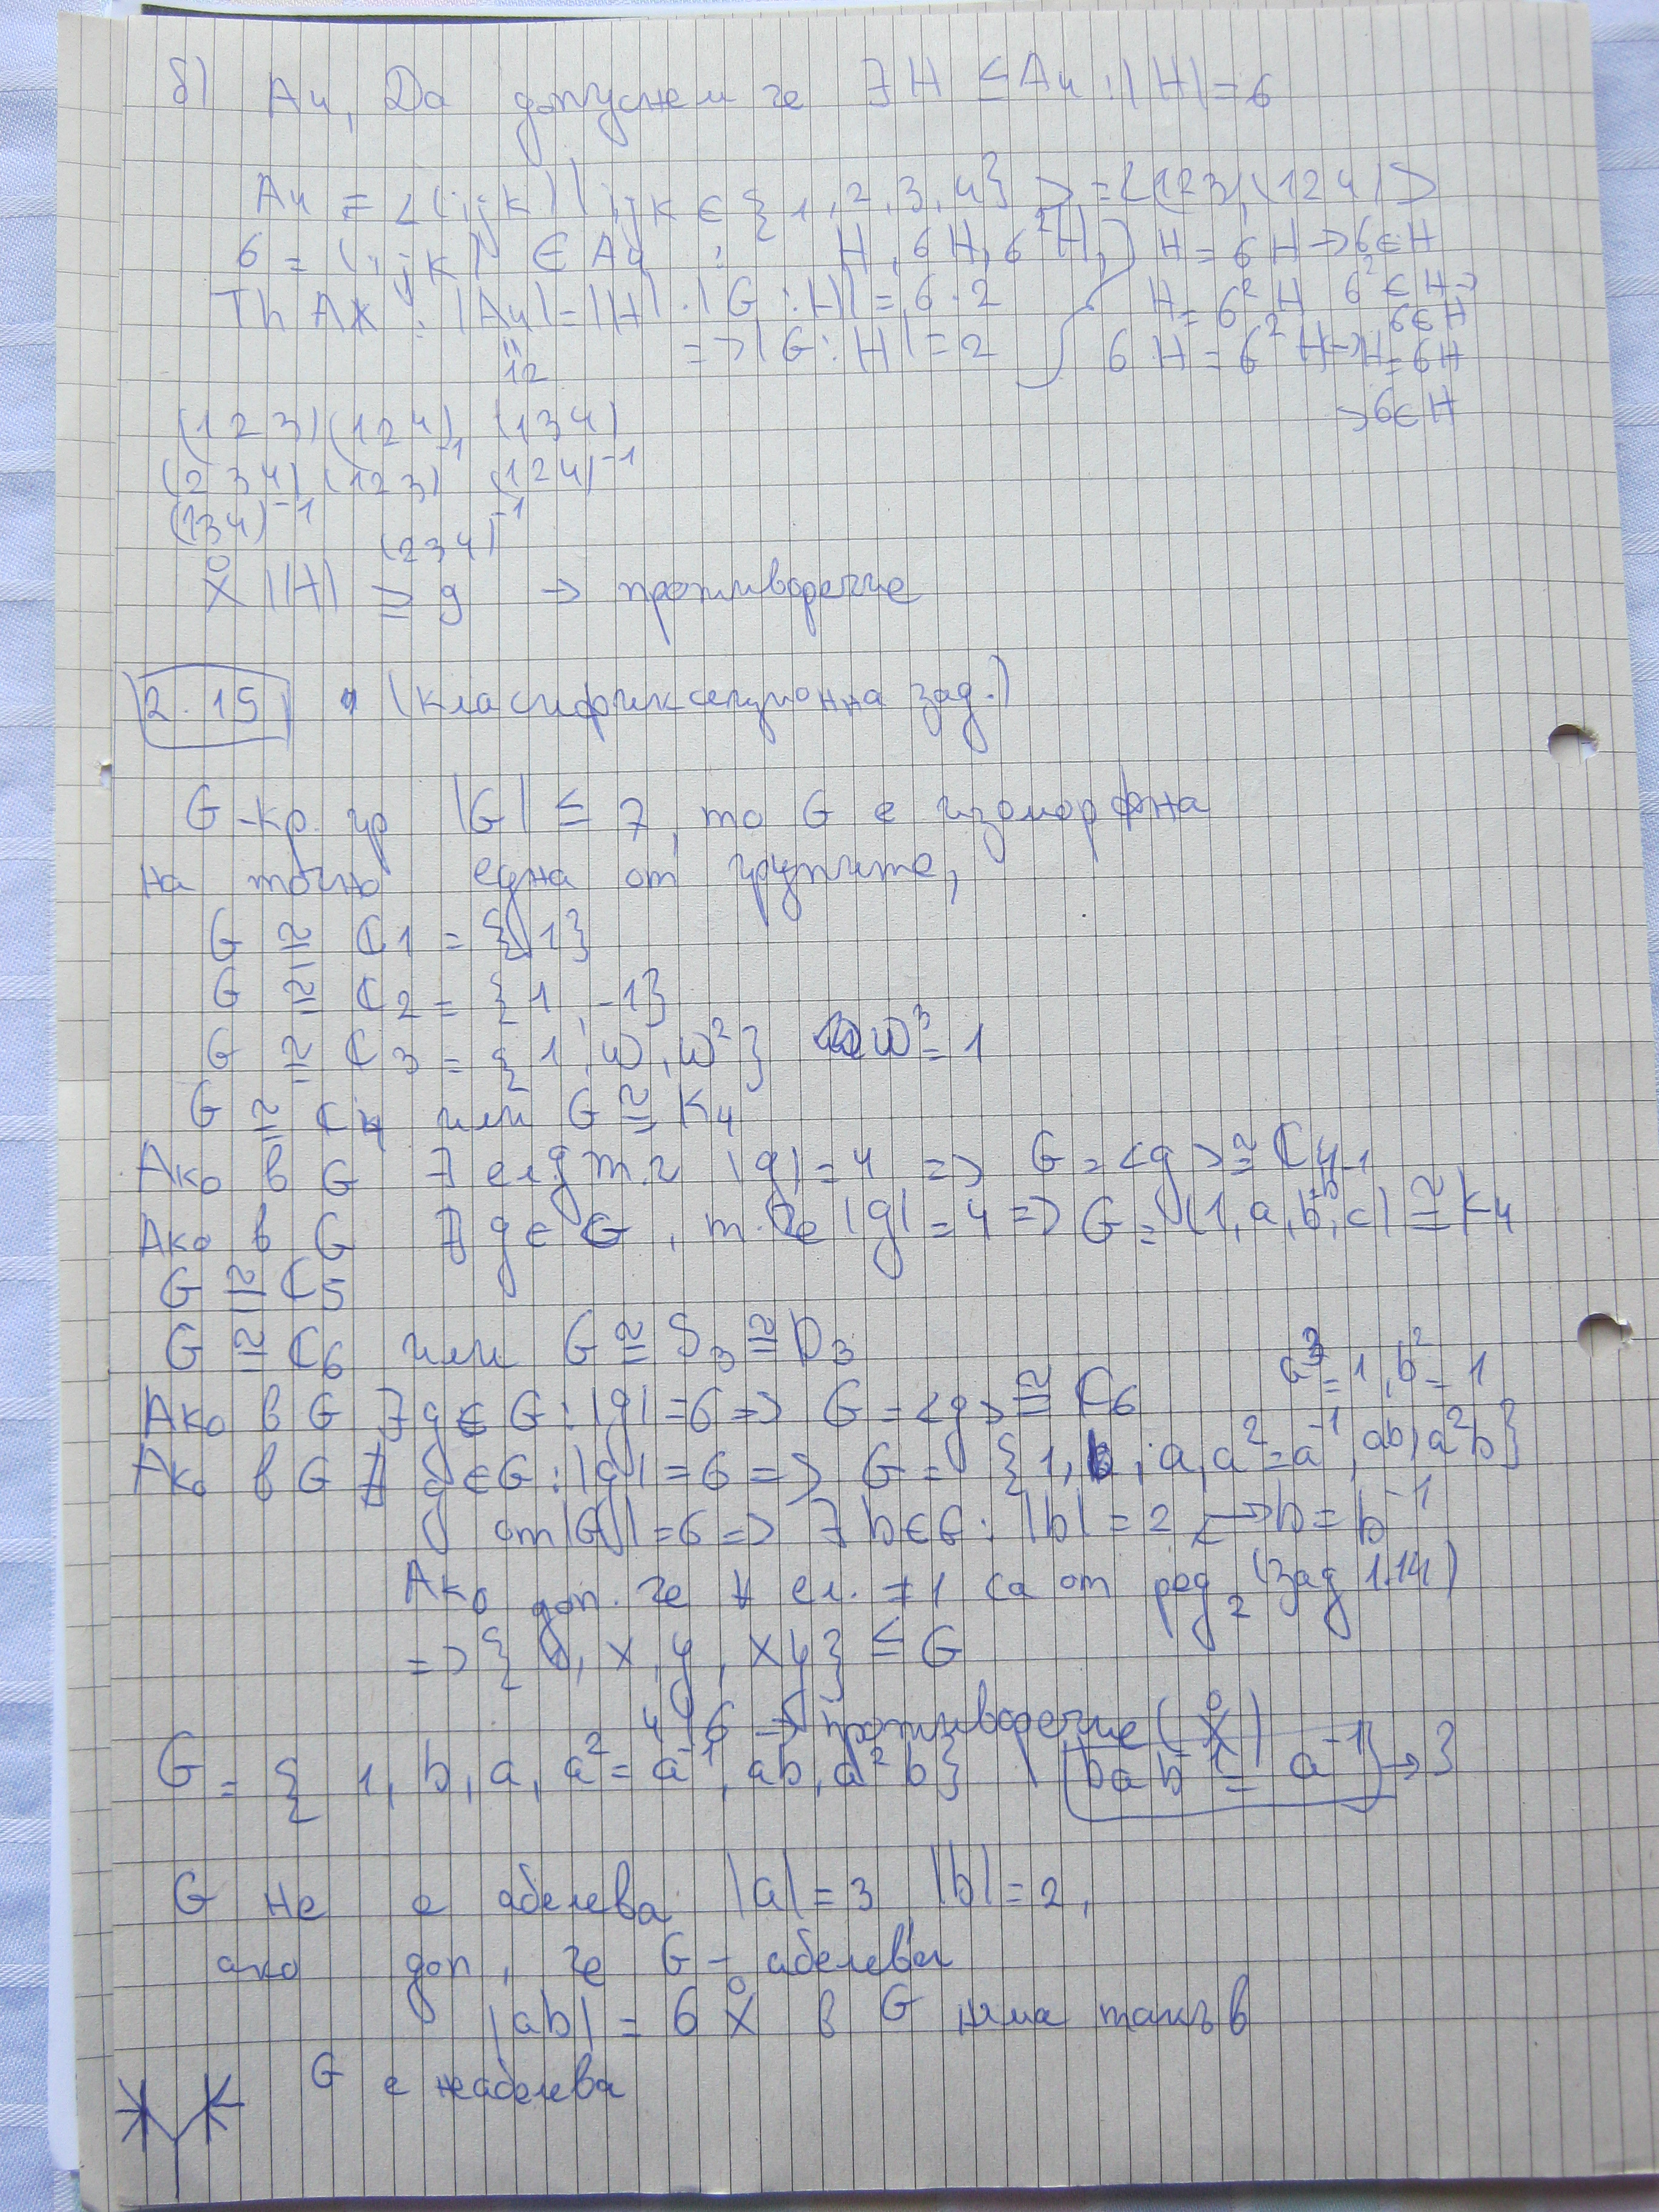 б) A4, Да допуснем че ∃ H ≤ A4 : |H| = 6
A4 = <(ijk) | ijk ∈ {1,2,3,4}> = <(123),(124)>
б = (ijk) ∈ A4 : H, бH, б²H, } H = бH → б∈H
Th Λж : |A4| = |H|.|G:H| = 6.2 H = б²H б²∈H →
б∈H
12 => |G:H| = 2 бH = б²H → H = бH
→ б∈H
(123)(124), (134)
(234) (123)⁻¹ (124)⁻¹
(134)⁻¹ (234)⁻¹
X |H| ≥ 9 → противоречие
2.15 (класификационна зад.)
G - кр. гр |G| ≤ 7, то G е изоморфна
на точно една от групите,
G ≅ C1 = {1}
G ≅ C2 = {1, -1}
G ≅ C3 = {1, w, w²} w³ = 1
G ≅ C4 или G ≅ K4
Ако в G ∃ ел. g т.ч |g| = 4 => G = <g> ≅ C4
Ако в G ∄ g ∈ G, т. че |g| = 4 => G = (1, a, b, c) ≅ K4
G ≅ C5
G ≅ C6 или G ≅ S3 ≅ D3
a³ = 1, b² = 1
Ако в G ∃ g ∈ G : |g| = 6 => G = <g> ≅ C6
Ако в G ∄ g ∈ G : |g| = 6 => G = {1, b, a, a² = a⁻¹, ab, a²b}
от |G| = 6 => ∃ b ∈ G : |b| = 2 <-> b = b⁻¹
Ако доп. че ∀ ел. ≠ 1 са от ред 2 (Зад 1.14)
=> {1, x, y, xy} ≤ G
4 ∤ 6 → противоречие (X)
G = {1, b, a, a² = a⁻¹, ab, a²b} | bab⁻¹ = a⁻¹ → 3
G не е абелева: |a| = 3, |b| = 2,
ако доп, че G - абелева
|ab| = 6 X в G няма такъв
G е неабелева